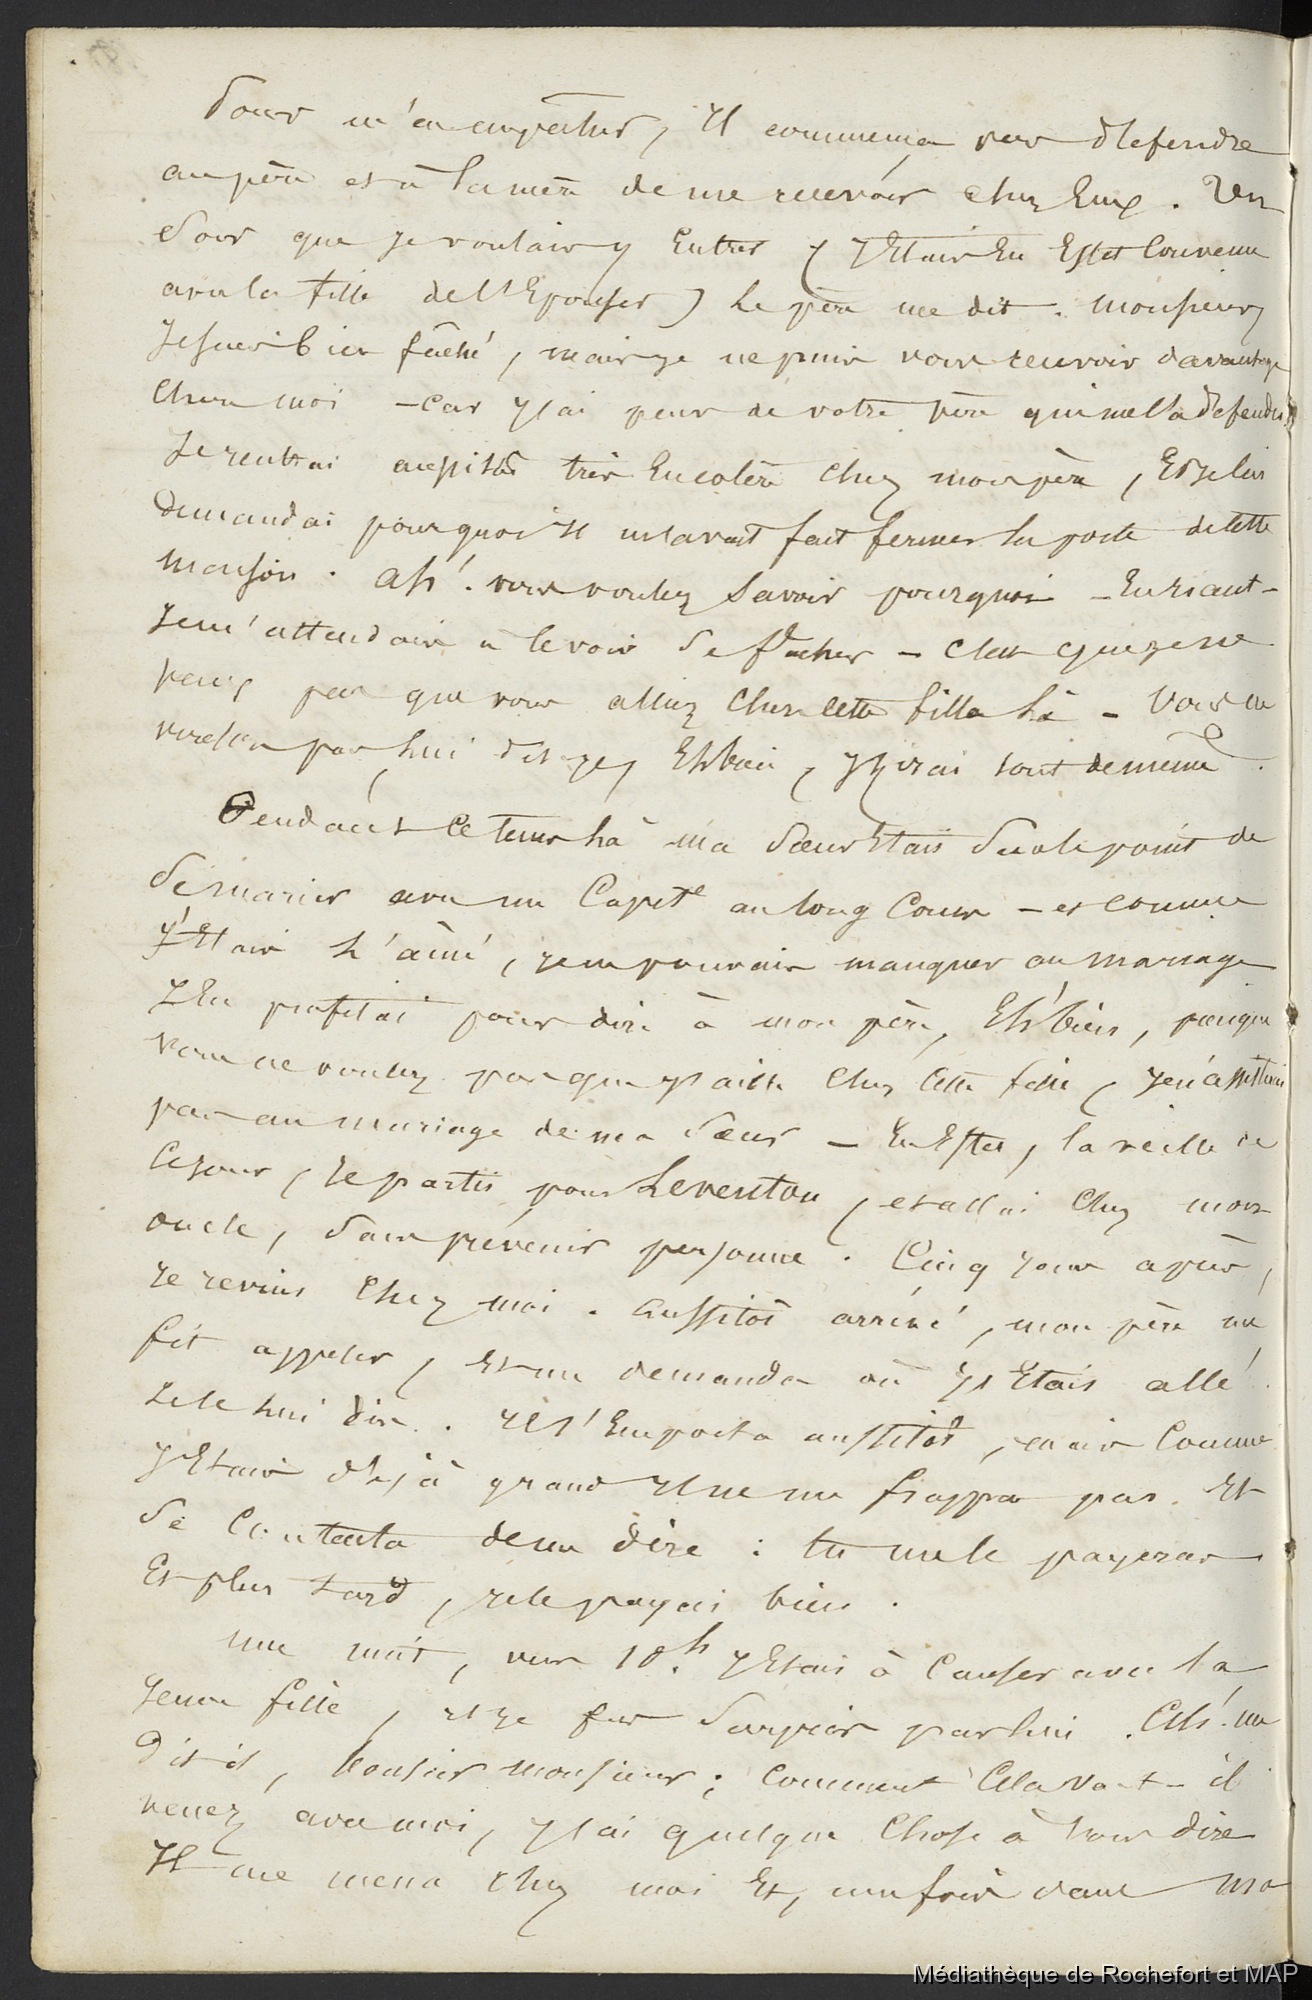 Pour m'en empêcher, Il commença par défendre
au père et à la mère de me recevoir chez Eux. Un
Jour que je voulais y Entrer (J'Etais En Effet Convenu
avec la fille de l'Epouser) le père me dit. Monsieur,
Je suis bien fâché, mais je ne puis vous recevoir davantage
chez moi - car j'ai peur de votre père qui me l'a défendu.
Je rentrai aussitôt très En colère chez mon père, Et je lui
demandai pourquoi Il m'avait fait fermer la porte de cette
maison. Ah! vous voulez Savoir pourquoi - En riant -
Je m'attendais à le voir Se fâcher - C'est que je ne
veux pas que vous alliez chez cette fille là - Vous ne
voulez pas lui dis-je, Eh bien, J'y irai tout de même.
Pendant ce tems là ma Sœur Etait Sur le point de
Se marier avec un Capit<sup>e</sup> au long Cours - et comme
J'Etais l'aîné, je ne pouvais manquer au mariage
J'En profitai pour dire à mon père, Eh bien, puisque
vous ne voulez pas que j'aille chez cette fille, Je n'assisterai
pas au mariage de ma Sœur - En Effet, la veille de
ce jour, Je partis pour et allai chez mon
oncle, Sans prévenir personne. Cinq jours après,
Je revins Chez moi. Aussitôt arrivé, mon père me
fit appeler, Et me demanda où J'Etais allé.
Je le lui dis. Il S'Emporta aussitôt, mais Comme
J'Etais déjà grand Il ne me frappa pas. Et
Se Contenta de me dire : tu me le payeras
Et plus tard, je le payai bien.
Une nuit, vers 10.h J'Etais à Causer avec la
Jeune fille, et je fus Surpris par lui. Ah! me
dit-il, bonsoir Monsieur ; Comment Cela va-t-il
venez avec moi, j'ai quelque Chose à vous dire
Il me mena chez moi Et, une fois dans ma
Médiathèque de Rochefort et MAP